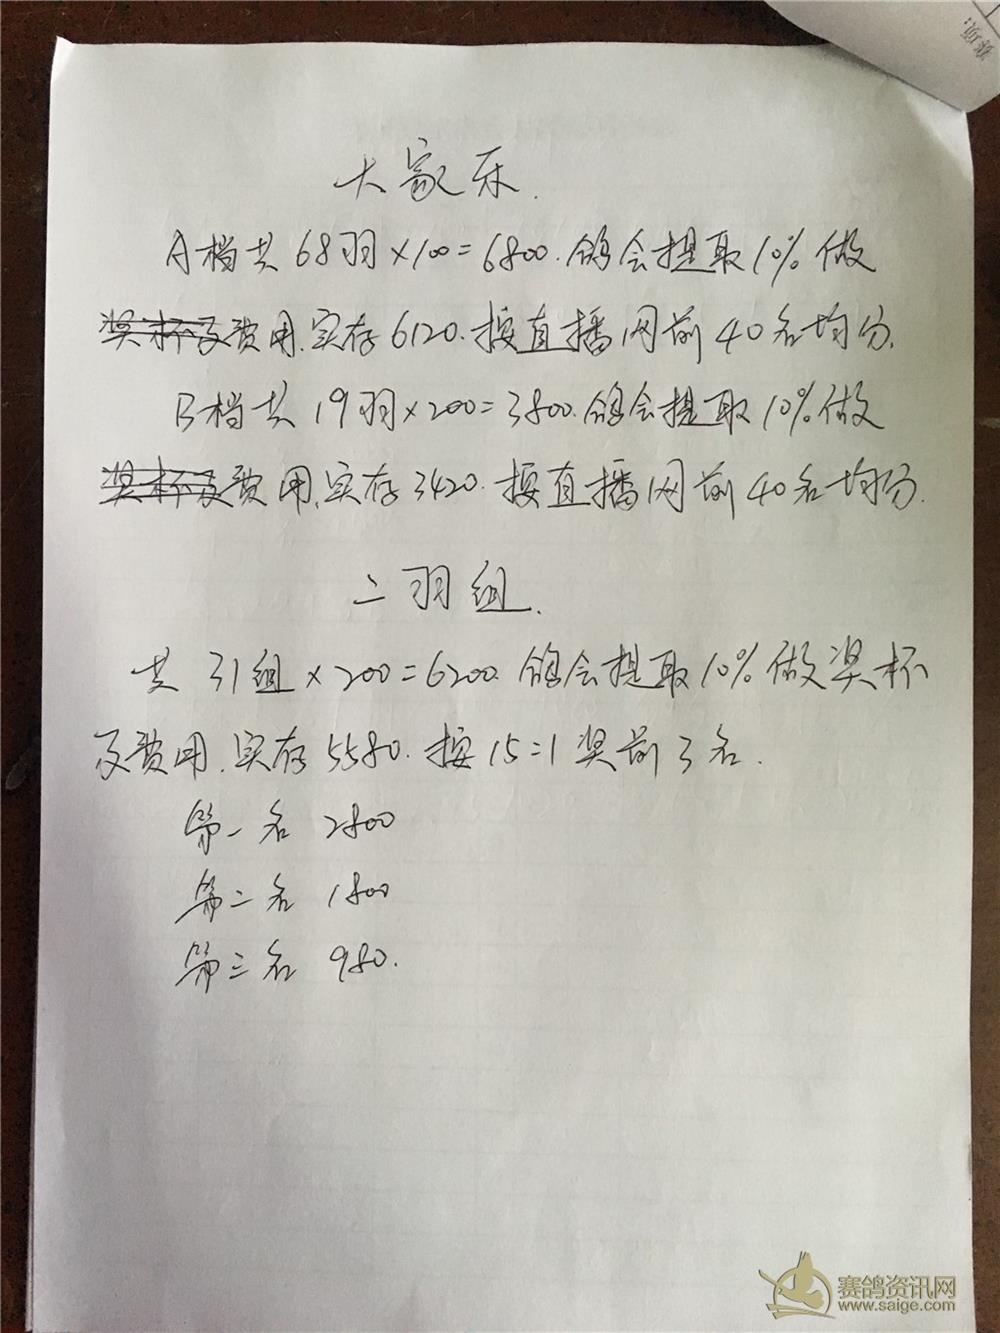 赛项:
大家乐.
A档共68羽×100=6800.鸽会提取10%做
奖杯及费用.实存6120.按直播网前40名均分.
B档共19羽×200=3800.鸽会提取10%做
奖杯及费用.实存3420.按直播网前40名均分.
二羽组.
共31组×200=6200.鸽会提取10%做奖杯
及费用.实存5580.按15=1奖前3名.
第一名 2800
第二名 1800
第三名 980.
赛鸽资讯网
www.saige.com